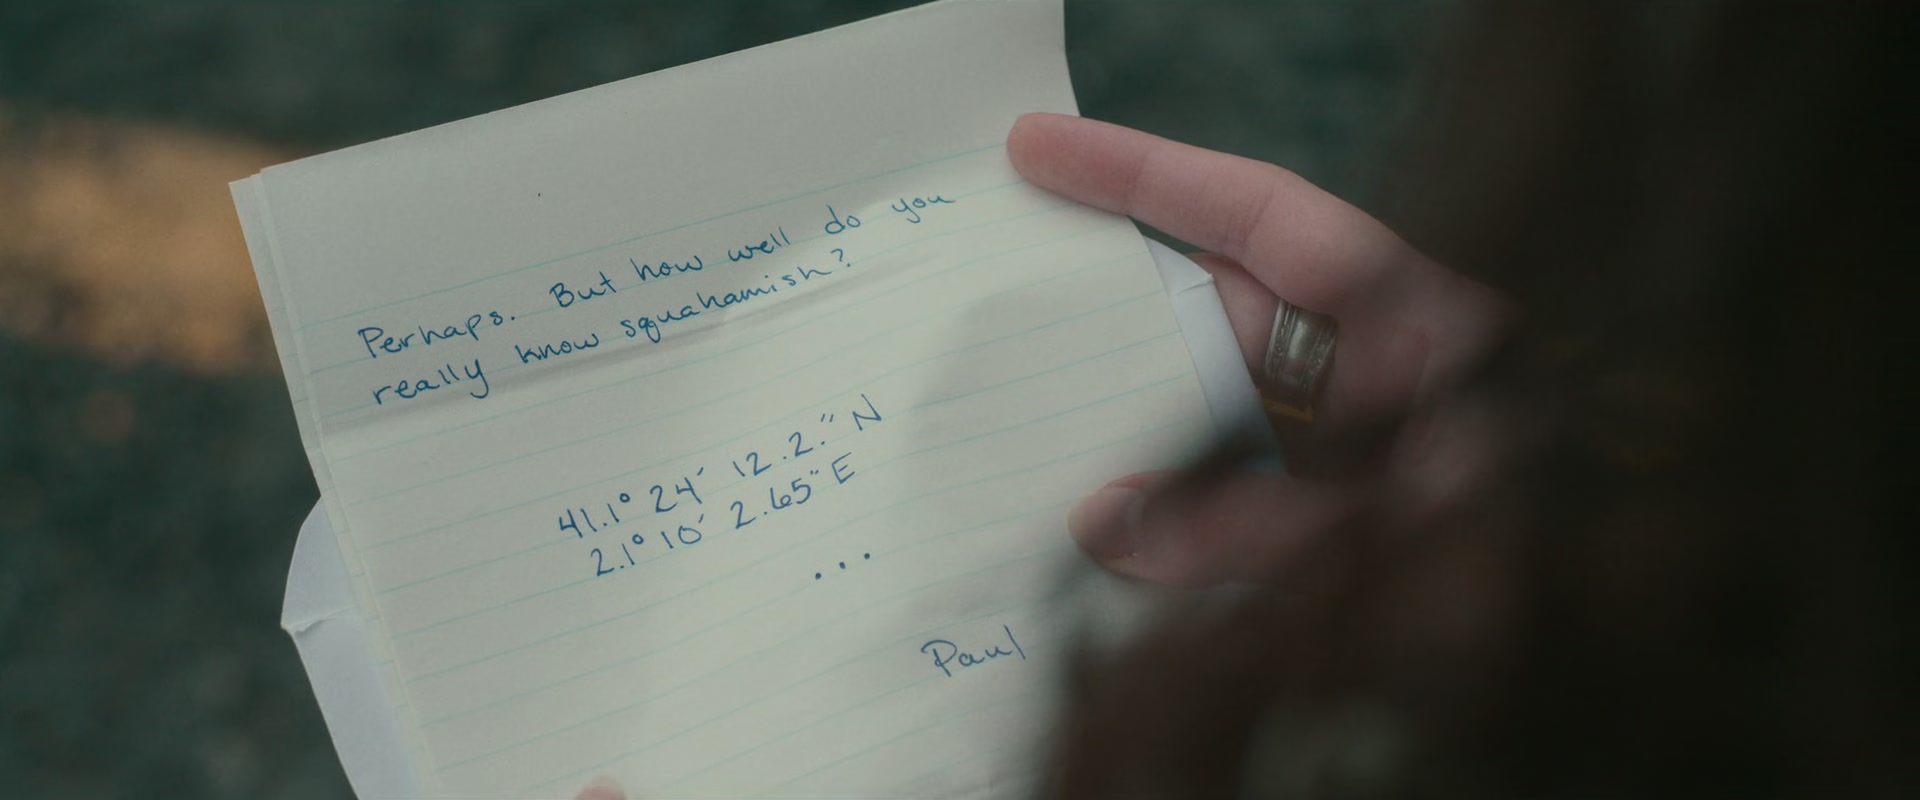 Perhaps. But how well do you
really know squahamish?
41.1° 24' 12.2." N
2.1° 10' 2.65" E
...
Paul